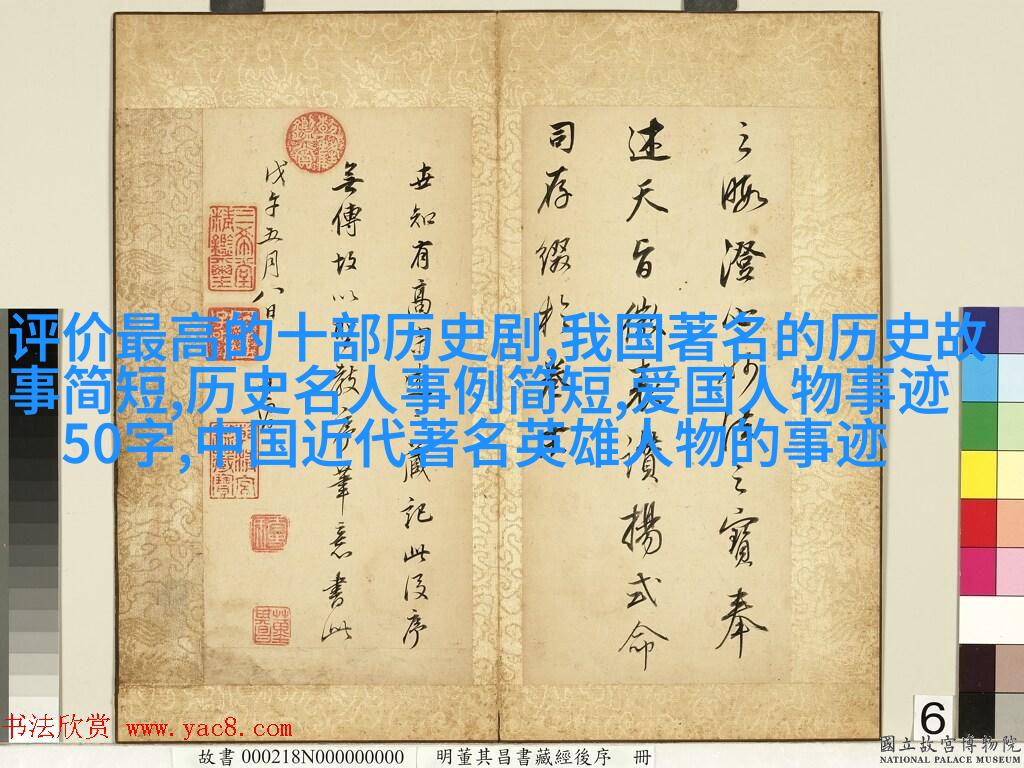 之暇澄心妙法之寶奉
述天旨微讚揚式命
司存綴於
世知有高宗藏記此後序
無傳故以教序筆意書此
戊午五月八日
三希堂精鑑璽
评价最高的十部历史剧,我国著名的历史故
事简短,历史名人事例简短,爱国人物事迹
50字,中国近代著名英雄人物的事迹
6
书法欣赏 www.yac8.com
故書 000218N000000000 明董其昌書藏經後序 冊
國立故宮博物院
NATIONAL PALACE MUSEUM